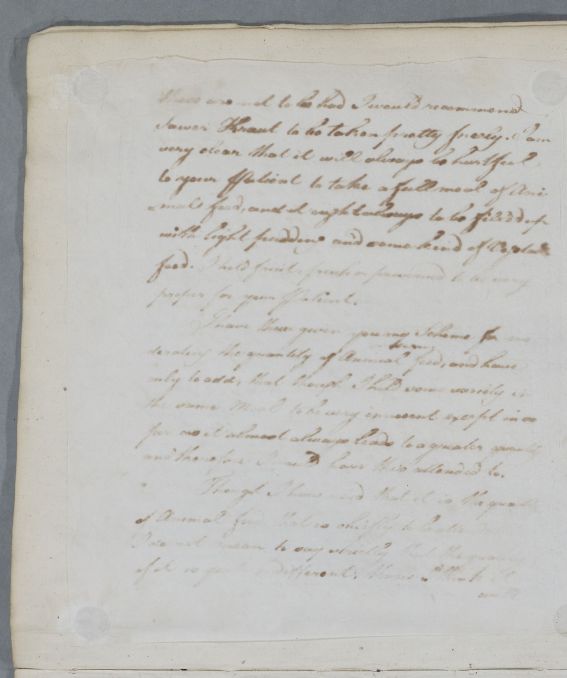 these are not to be had I would recommend
Sower Kraut to be taken pretty freely. I am
very clear that it will always be hurtful
to your Patient to take a full meal of Ani
mal food, and it ought always to be pieced up
with light pudden and some kind of
food. I hold fruit fresh or preserved to be very
proper for your Patient.
I have thus given you my Scheme for mo
derating the quantity of Animal food, and have
only to add, that though I hold some variety in
the same Meal to be very innocent except in so
far as it almost always leads to a greater quantity
and therefore I would have this attended to.
Though I have said that it is the quantity
of Animal food that is chiefly to be
I do not mean to say strictly that the quality
of it is indifferent. think it